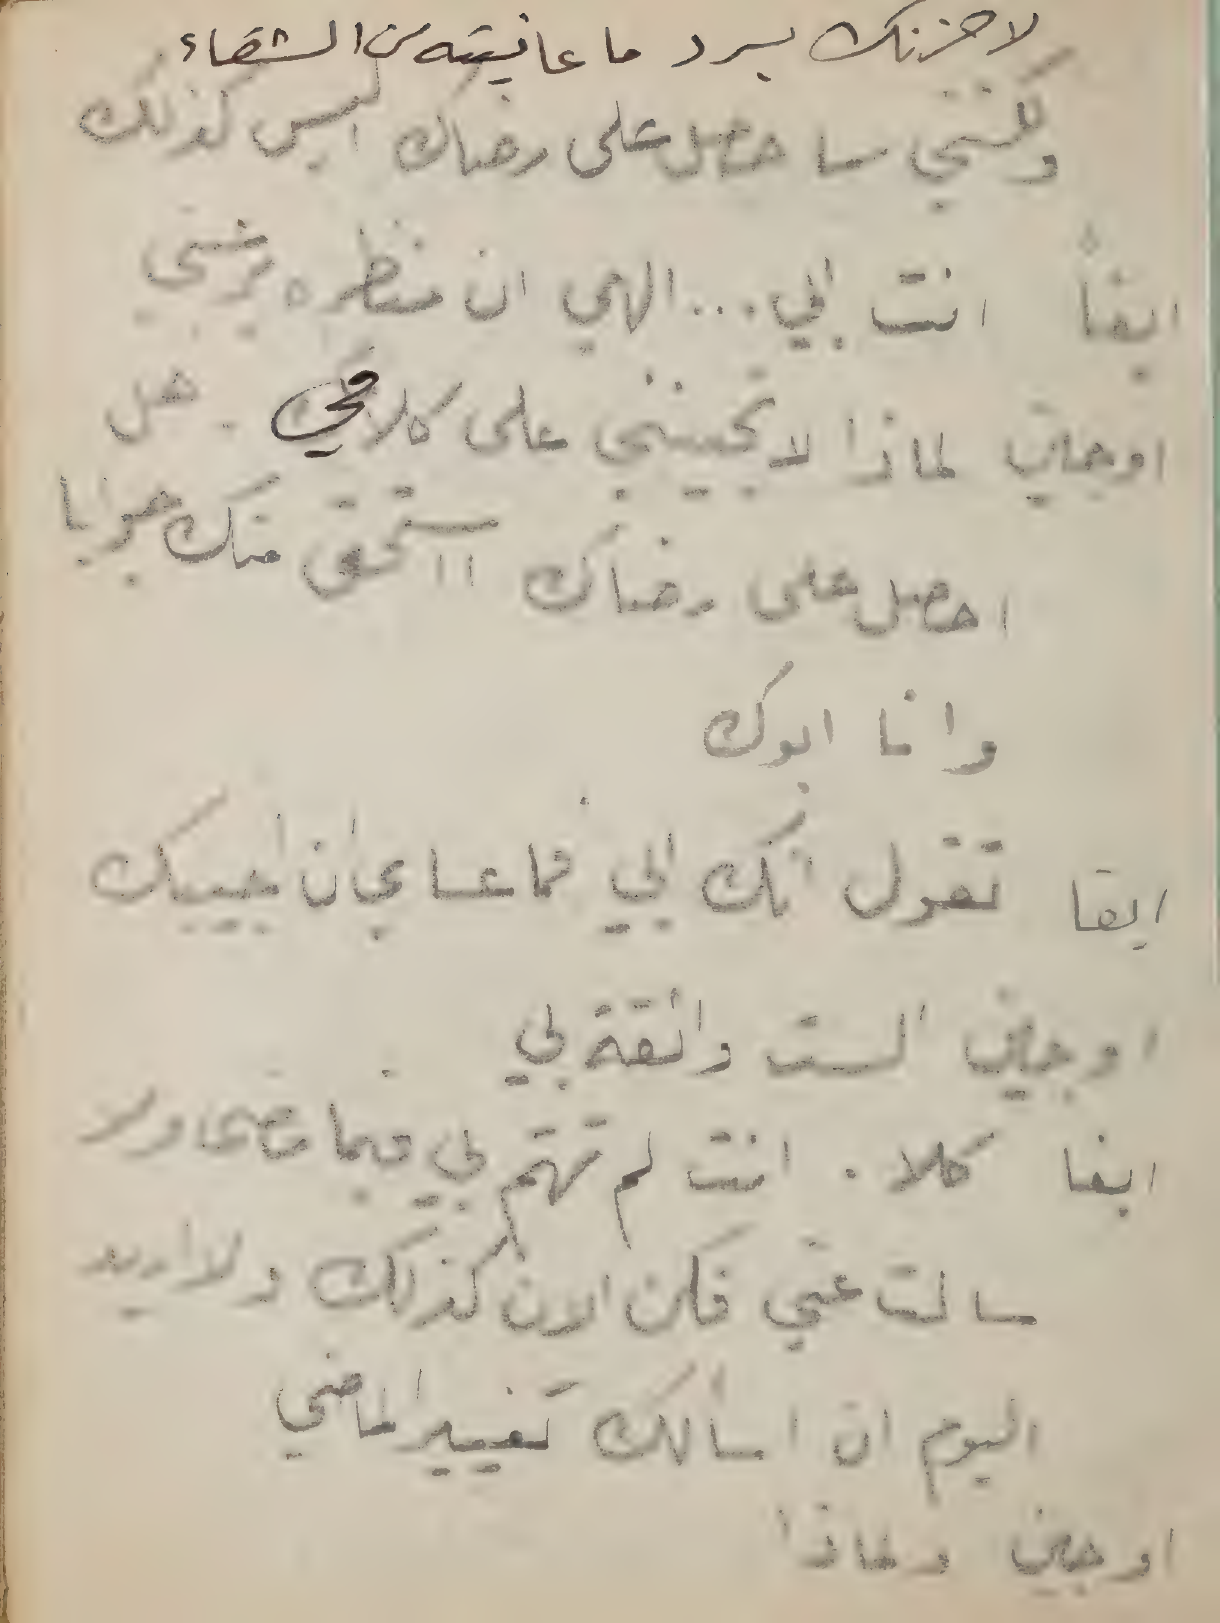 لاحزنك بسرد ما عانيته من الشقاء
ولكنني سا حصل على رضاك اليس كذلك
ايفا انت ابي ... الهي ان منظره يرعبني
اوجان لماذا لا تجيبينني على كلامي . هل
احصل على رضاك اا ستحق منك جوابا
وانا ابوك
ايفا تقول انك ابي فما عسا ني ان اجيبك
اوجان الست واثقة بي
ايفا كلا . انت لم تهتم بي فيما مضى ولا
سالت عني فكن الان كذلك ولا اريد
اليوم ان اسألك تغيير الماضي
اوجان ولماذا